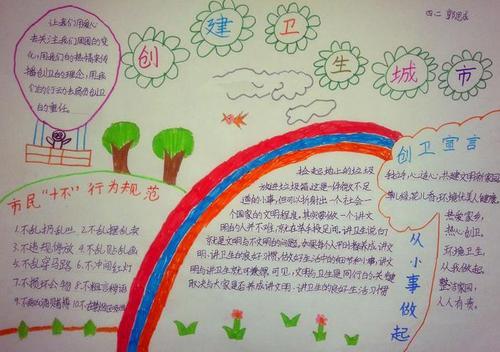 四二
创建卫生城市
让我们用爱心
去关注我们周围的变
化，用我们的热情来传
播创卫的理念，用我
们的行动去肩负创卫
的重任。
市民“十不”行为规范
1.不乱扔乱吐 2.不乱摆乱卖
3.不违规停放 4.不乱贴乱画
5.不乱穿马路 6.不冲闯红灯
7.不损坏公物 8.不粗言秽语
捡起地上的垃圾
放进垃圾箱这是一件微不足
道的小事，但可以折射出一个社会一
个国家的文明程度，其实要做一个讲文
明的人并不难，就在某木投足间，讲卫生说白了
就是文明与不文明的问题，如果每个人都
明、讲卫生的良好习惯，做好生活中的细节和小事，讲文
明与讲卫生就不难 可见，文明与卫生是同行的，关键
取决与大家是否养成讲文明、讲卫生的良好生活习惯
创卫宣言
共建文明新家园
草儿绿花儿香，环境优美人健康。
共爱家乡，
热心创卫，
环境卫生，
从我做起，
整洁家园，
人人有责。
从小事做起